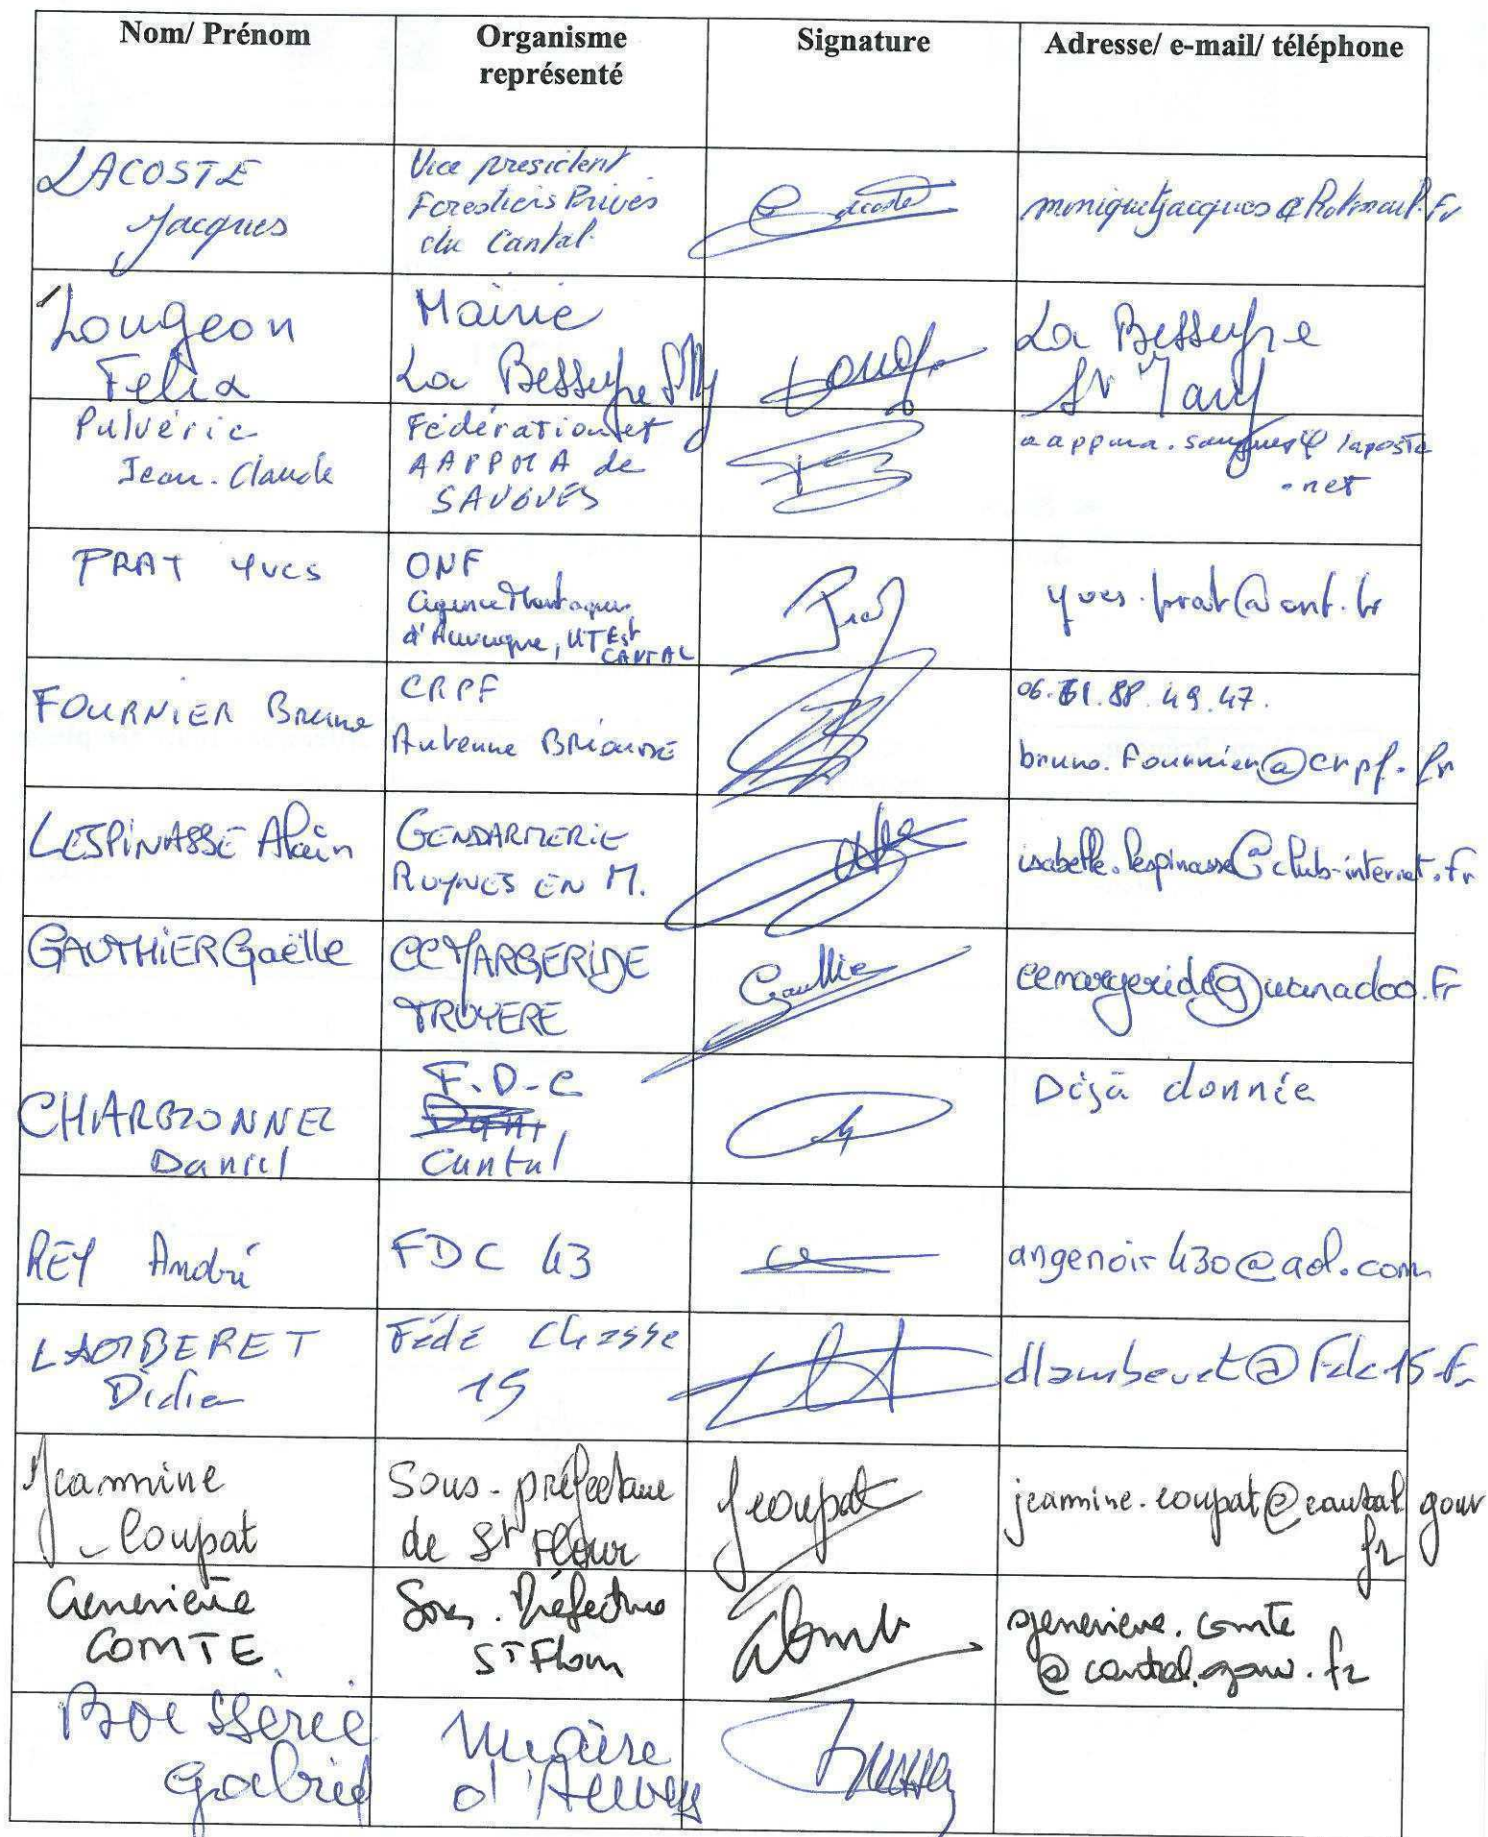 Nom/ Prénom
Organisme
représenté
Signature
Adresse/ e-mail/ téléphone
LACOSTE
Jacques
Vice president
Forestiers Privés
du Cantal.
Lacoste
Lougeon
Felix
Mairie
La Besseyre St My
Loug
La Besseyre
St Mary
Pulvéric
Jean-Claude
Fédération et
AAPPMA de
SAUGUES
aappma.saugues@laposte
.net
PRAT Yves
ONF
Agence Montagnes
d'Auvergne, UT Est
CANTAL
Prat
yves.prat@onf.fr
FOURNIER Bruno
CRPF
Antenne BRIOUDE
06.61.88.49.47.
bruno.fournier@crpf.fr
LESPINASSE Alain
GENDARMERIE
RUYNES EN M.
isabelle.lespinasse@club-internet.fr
GAUTHIER Gaëlle
CC MARGERIDE
TRUYERE
Gauthier
ccmargeride@wanadoo.fr
CHARBONNEL
Daniel
F.D-C
Cantal
Déjà donnée
REY André
FDC 43
angenoir430@aol.com
LAMBERET
Didier
Fédé Chasse
15
dlamberet@fdc15.fr
Jeannine
Coupat
Sous-préfecture
de St Flour
Jcoupat
jeannine.coupat@cantal.gouv
fr
Geneviève
COMTE
Sous.Préfecture
ST Flour
Comte
genevieve.comte
@cantal.gouv.fr
Boisserie
Gabriel
Maire
d'Auvers